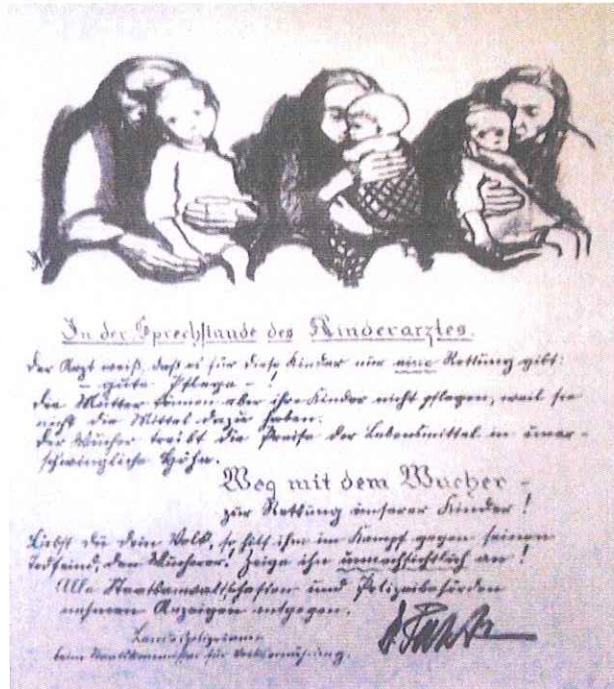 In der Sprechstunde des Kinderarztes.
Der Arzt weiß, daß es für diese Kinder nur eine Rettung gibt:
– gute Pflege – !
Die Mütter können aber ihre Kinder nicht pflegen, weil sie
nicht die Mittel dazu haben.
Der Wucher treibt die Preise der Lebensmittel in uner-
schwingliche Höhe.
Weg mit dem Wucher –
zur Rettung unserer Kinder!
Liebst du dein Volk, so hilf ihm im Kampf gegen seinen
Todfeind, den Wucherer! Zeige ihn unnachsichtlich an!
Alle Staatsanwaltschaften und Polizeibehörden
nehmen Anzeigen entgegen.
Landespolizeiamt
beim Staatskommissar für Volksernährung.